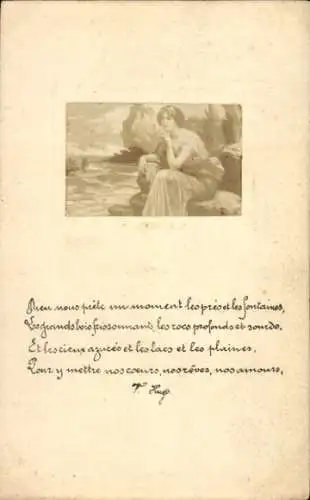 Dieu nous prête un moment les prés et les fontaines,
Les grands bois frissonnants, les rocs profonds et sourds.
Et les cieux azurés et les lacs et les plaines,
Pour y mettre nos cœurs, nos rêves, nos amours,
V. Hugo